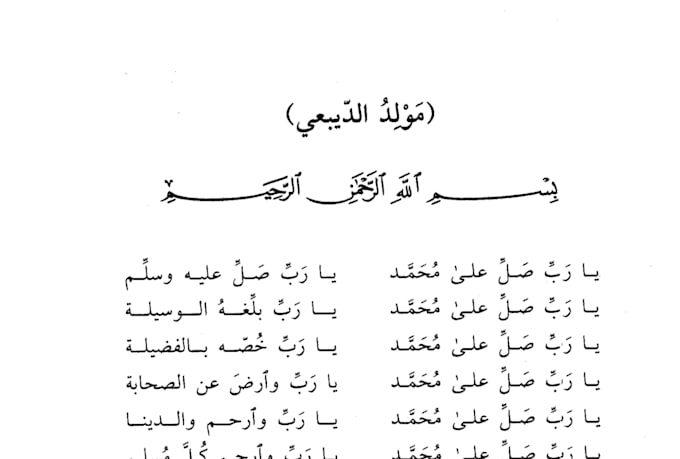 (مَوْلِدُ الدّيبعي)
بِسْمِ اللَّهِ الرَّحْمَٰنِ الرَّحِيمِ
يا رَبِّ صَلِّ علىٰ مُحَمَّد يا رَبِّ صَلِّ عليه وسلِّم
يا رَبِّ صَلِّ علىٰ مُحَمَّد يا رَبِّ بلِّغهُ الوسيلة
يا رَبِّ صَلِّ علىٰ مُحَمَّد يا رَبِّ خُصّه بالفضيلة
يا رَبِّ صَلِّ علىٰ مُحَمَّد يا رَبِّ وٱرضَ عن الصحابة
يا رَبِّ صَلِّ علىٰ مُحَمَّد يا رَبِّ وٱرحم والدينا
يا رَبِّ صَلِّ علىٰ مُحَمَّد يا رَبِّ وٱرحم كُلَّ